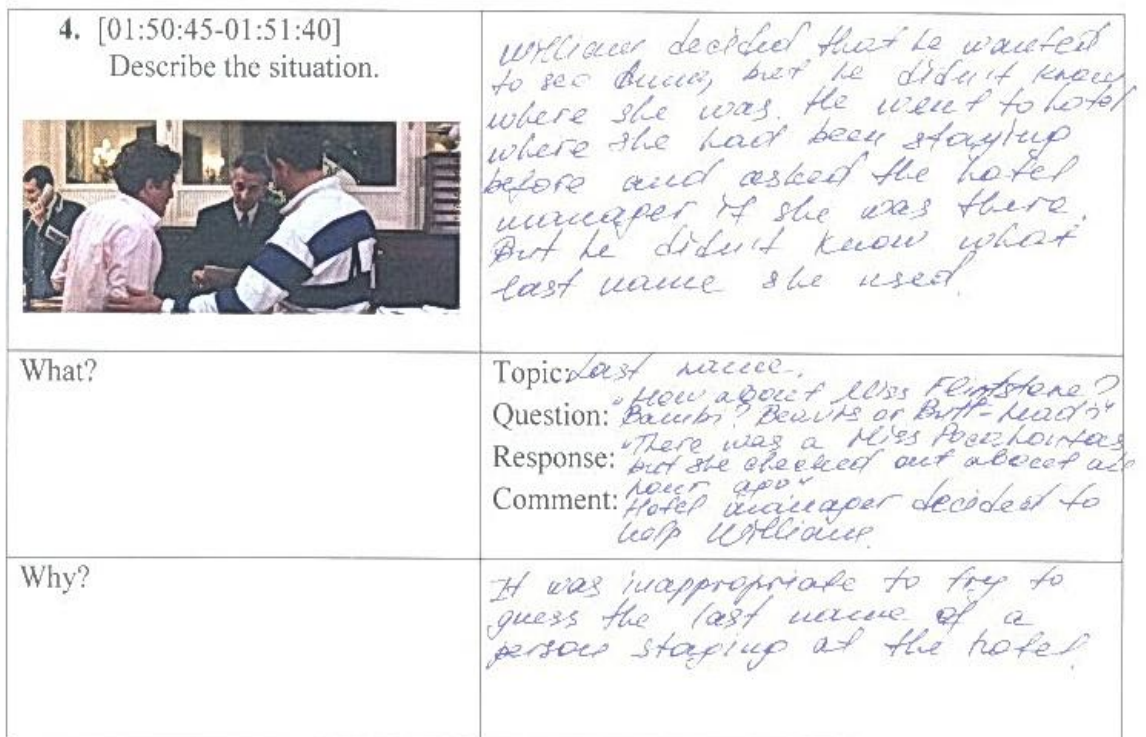 4. [01:50:45-01:51:40]
Describe the situation.
William decided that he wanted
to see Anna, but he didn't know
where she was. He went to hotel
where she had been staying
before and asked the hotel
manager if she was there.
But he didn't know what
last name she used.
What?
Topic: Last name.
Question: "How about Miss Flintstone?
Bambi? Beavis or Butt-head?"
Response: "There was a Miss Pocahontas,
but she checked out about an
hour ago"
Comment: Hotel manager decided to
help William.
Why?
It was inappropriate to try to
guess the last name of a
person staying at the hotel.